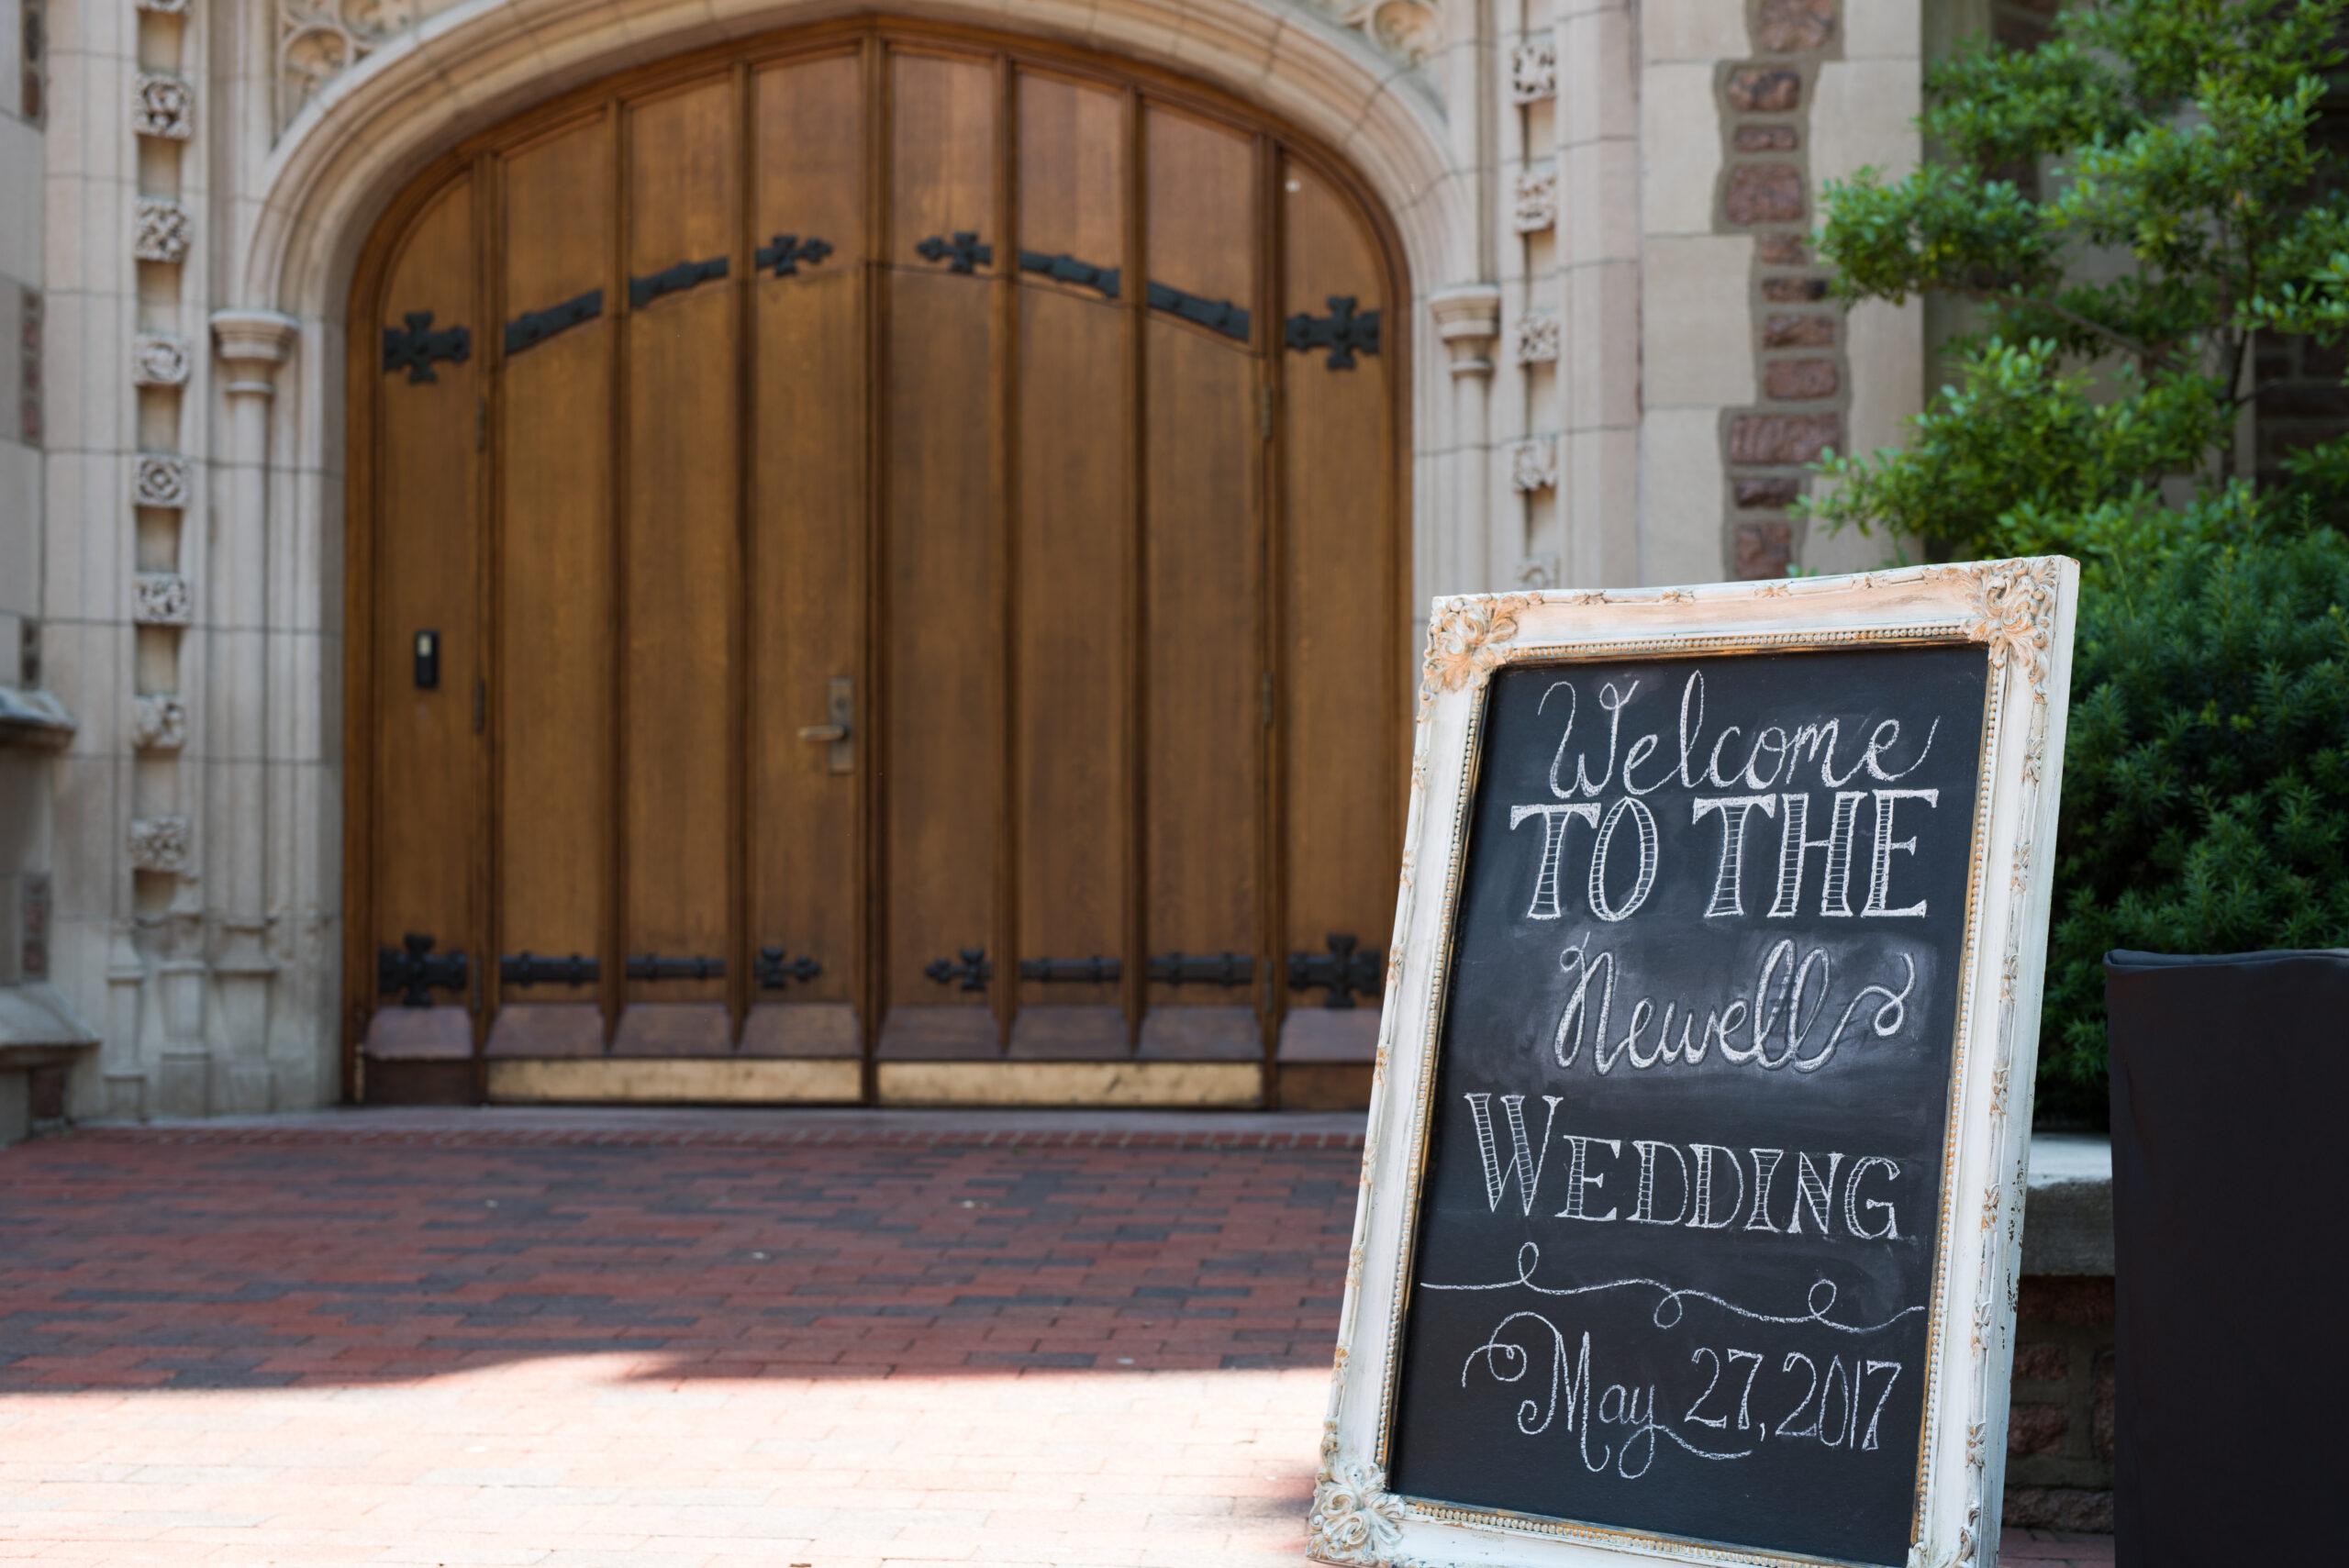 Welcome
TO THE
Newell
WEDDING
May 27, 2017